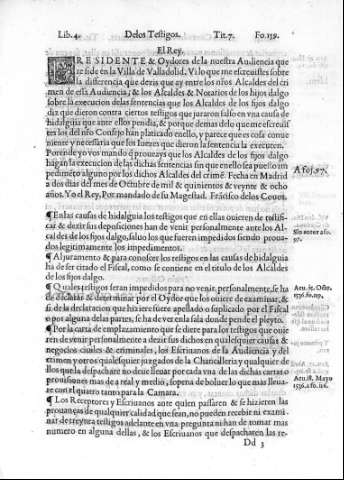 Lib. 4. Delos Testigos. Tit. 7. Fo. 159.
El Rey.
PRESIDENTE & Oydores de la nuestra Audiencia que
reside en la Villa de Valladolid. Vi lo que me escreuistes sobre
la differencia que dezis que ay entre los nros Alcaldes del cri
men de essa Audiencia; & los Alcaldes & Notarios de los hijos dalgo
sobre la execucion de las sentencias que los Alcaldes de los hijos dalgo
diz que dieron contra ciertos testigos que juraron falso en vna causa de
hidalguia que ante ellos pendia, & porque demas de lo que me escreuis
tes los del nro Consejo han platicado en ello, y parece que es cosa conue
niente y necessaria que los Iuezes que dieron la sentencia la executen.
Porende yo vos mando que proueays que los Alcaldes de los hijos dalgo
hagan la execucion de las dichas sentencias sin que en ello sea puesto im
pedimeto alguno por los dichos Alcaldes del crime. Fecha en Madrid
a dos dias del mes de Octubre de mil & quinientos & veynte & ocho
años. Yo el Rey. Por mandado de su Magestad. Frácisco delos Couos.
A fo j. 97.
¶ En las causas de hidalguia los testigos que en ellas ouieren de testifi
car & dezir sus deposiciones han de venir personalmente ante los Al-
caldes de los hijos dalgo, saluo los que fueren impedidos siendo proua
dos legitimamente los impedimentos.
97.
¶ Al juramento & para conocer los testigos en las causas de hidalguia
ha de ser citado el Fiscal, como se contiene en el titulo de los Alcaldes
de los hijos dalgo.
¶ Quales testigos seran impedidos para no venir personalmente, se ha
de declarar & determinar por el Oydor que los ouiere de examinar, &
si de la declaracion que hiziere fuere apellado o suplicado por el Fiscal
o por alguna de las partes, se ha de ver en la sala donde pende el pleyto.
¶ Por la carta de emplazamiento que se diere para los testigos que ouie
ren de venir personalmente a dezir sus dichos en qualesquier causas &
negocios ciuiles & criminales, los Escriuanos de la Audiencia y del
crimen y otros qualesquier juzgados de la Chancilleria y qualquier de
llos que la despachare no deue lleuar por cada vna de las dichas cartas o
prouisiones mas de a real y medio, so pena de boluer lo que mas lleua-
re con el quatro tanto para la Camara.
Acu. 18. Mayo
¶ Los Receptores y Escriuanos ante quien passaren & se hizieren las
prouanças de qualquier calidad que sean, no pueden recibir ni exami
nar de treynta testigos adelante en vna pregunta ni han de tomar mas
numero en alguna dellas, & los Escriuanos que despacharen las re-
Dd 3